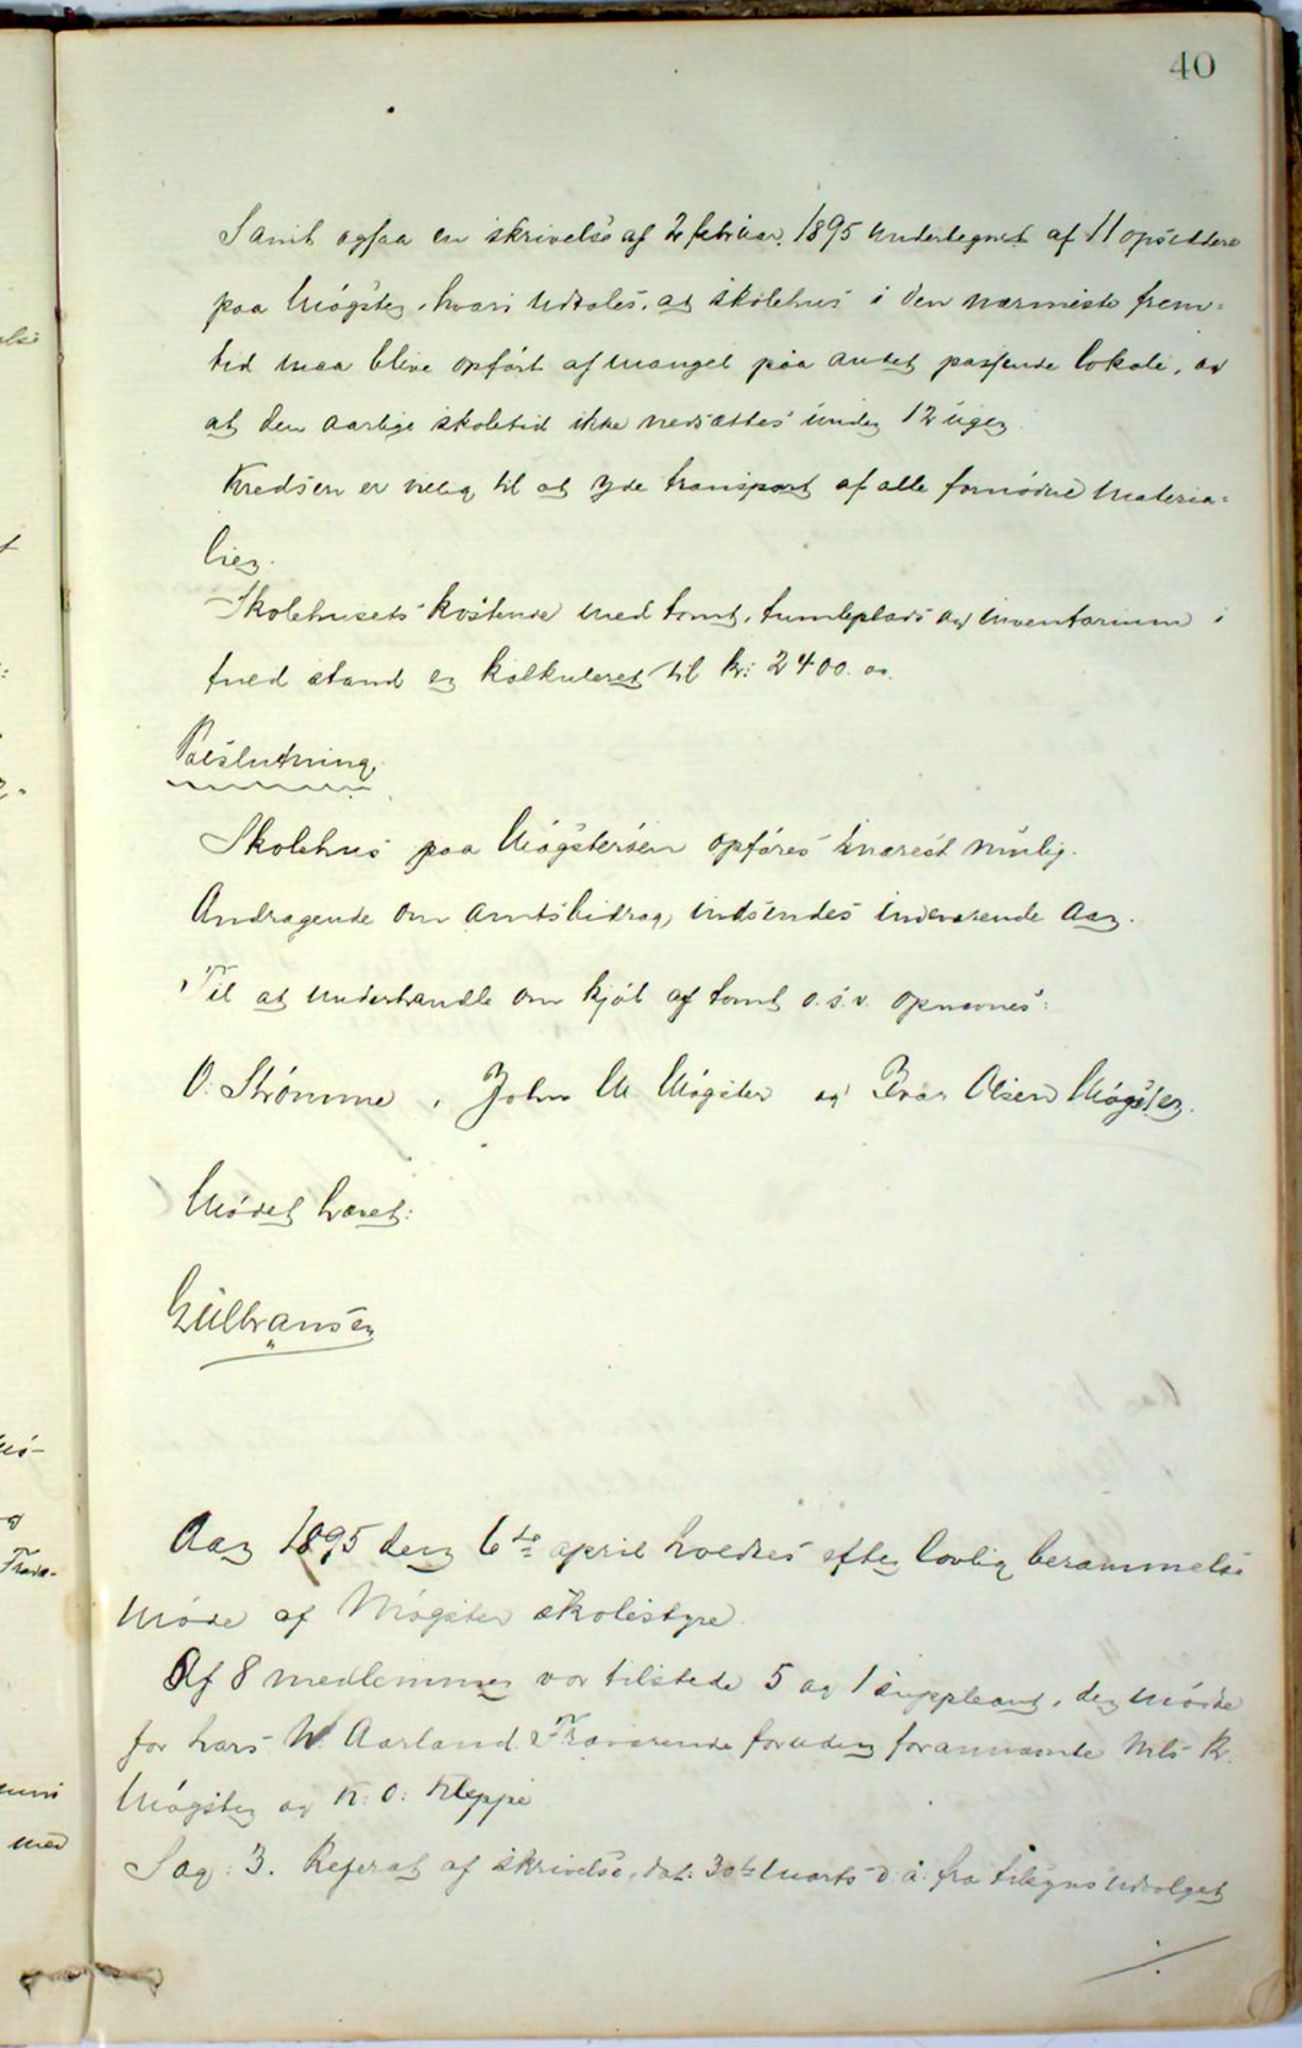 40
Samt ogsaa en skrivelse af 2 februar 1895 undertegnet af 11 opsiddere
paa Møgster, hvori udtales, at skolehus i den nærmeste frem=
tid maa blive opført af mangel paa andet passende lokale, og
at den aarlige skoletid ikke nedsættes under 12 uger.
Kredsen er villig til at yde transport af alle fornødne materia=
lier.
Skolehusets kostende med tomt, tumleplads og inventarium i
fued stand er kalkuleret til kr: 2400.00.
Beslutning,
Skolehus paa Møgsterøen opføres snarest mulig.
Andragende om amtsbidrag, indsendes indeværende aar.
Til at underhandle om kjøb af tomt o.s.v. opnævnes:
O. Strømme, John M. Møgster og Ivar Olsen Møgster.
Mødet hævet:
Gulbransen
Aar 1895 den 6te april holdtes efter lovlig berammelse
møde af Møgster skolestyre.
Af 8 medlemmer var tilstede 5 og 1 suppleant, der mødte
for Lars W. Aarland. Fraværende foruden forannævnte Nils K.
Møgster og K: O: Kleppe
Sag: 3. Referat af skrivelse, dat: 30te marts d. å. fra tilsynsudvalget
./.